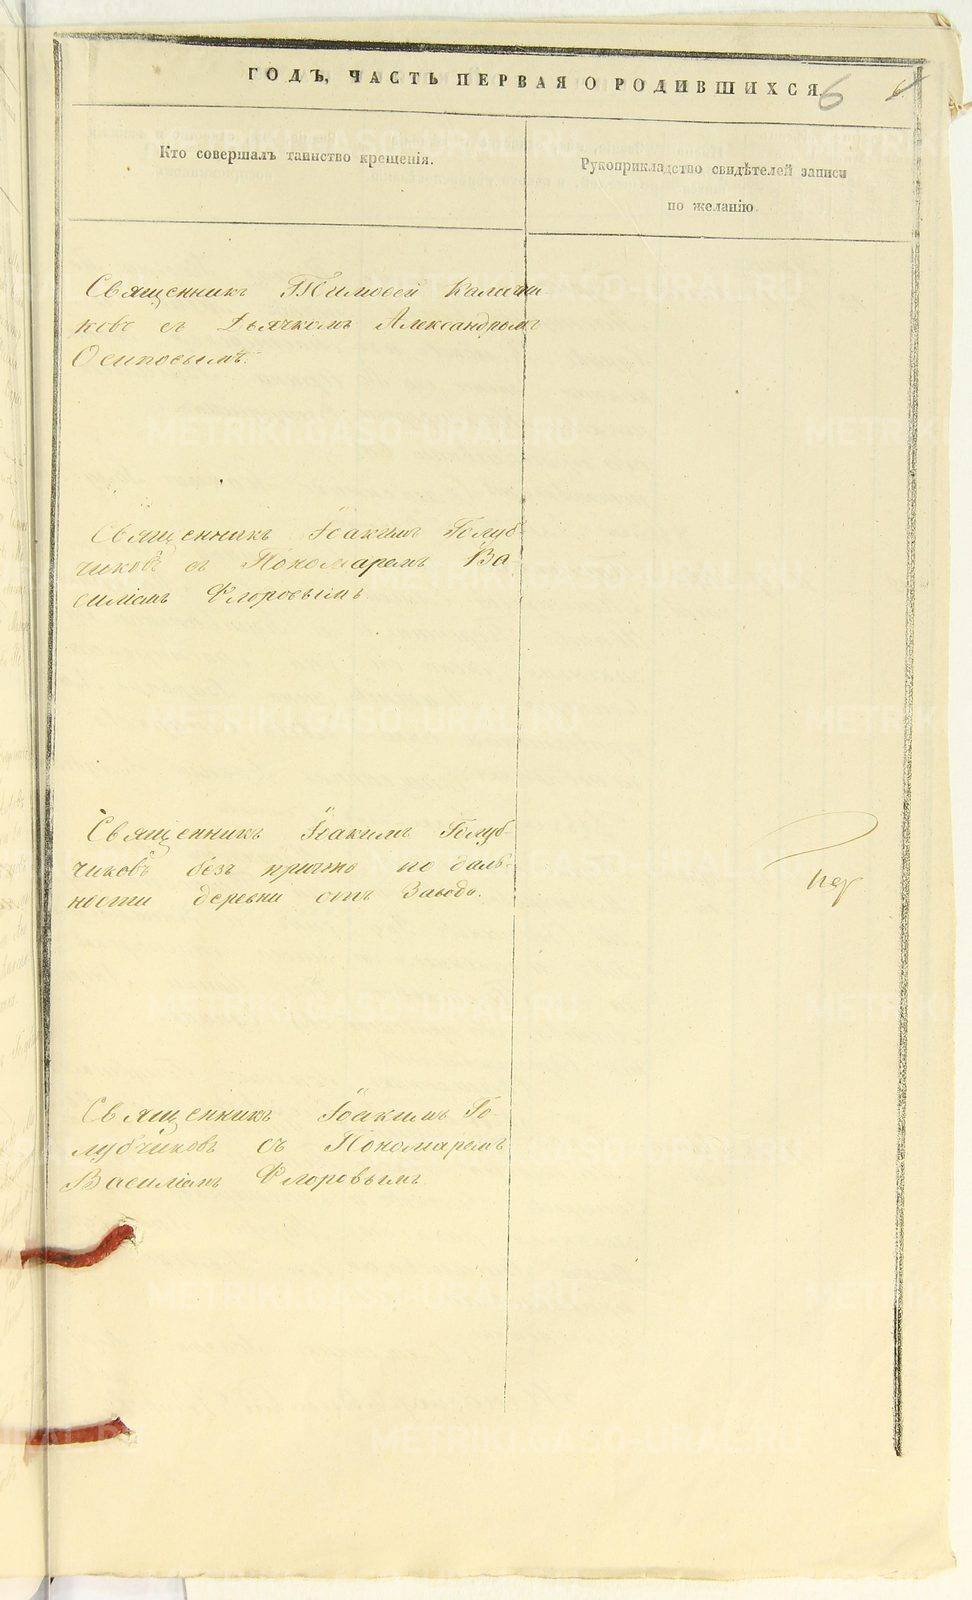 ГОДЪ, ЧАСТЬ ПЕРВАЯ О РОДИВШИХСЯ. 6
Кто совершалъ таинство крещенія.
Рукоприкладство свидѣтелей записи
по желанію.
Священникъ Тимоѳей Калачни-
ковъ съ Дьячкомъ Александромъ
Осиповымъ.
Священникъ Іоакимъ Голуб-
чиковъ съ Пономаремъ Ва
силіемъ Флоровымъ
Священникъ Іоакимъ Голуб-
чиковъ безъ причта по даль-
ности деревни отъ Завода.
Священникъ Іоакимъ Го
лубчиковъ съ Пономаремъ
Василіемъ Флоровымъ
METRIKI.GASO-URAL.RU